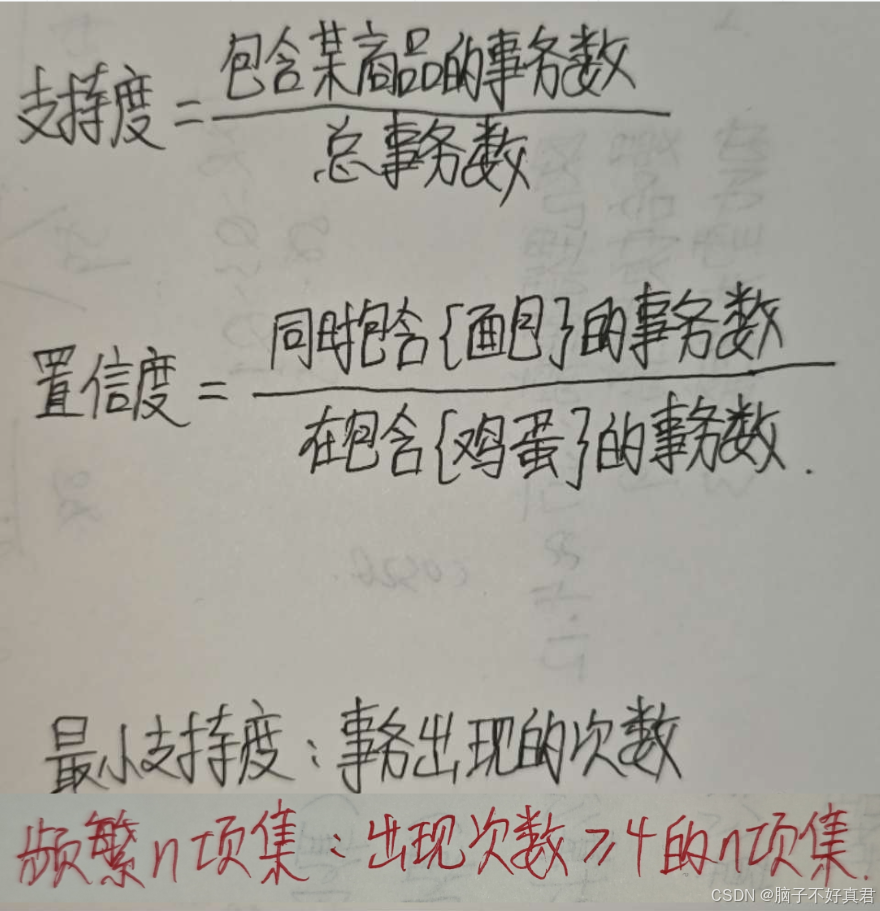 支持度 = 包含某商品的事务数 / 总事务数
置信度 = 同时包含{面包}的事务数 / 在包含{鸡蛋}的事务数.
最小支持度:事务出现的次数
频繁n项集:出现次数≥4的n项集.
CSDN @脑子不好真君